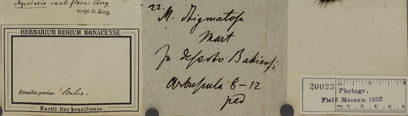 Myrciaria cauliflora Berg.
script. O. Berg.
HERBARIUM REGIUM MONACENSE.
Brasilia prov. Bahia.
Martii iter brasiliense.
22.
M. stigmatosa
Mart
in deserto Bahiensi
Arbuscula 6-12
ped
20023
Photogr.
Field Museum 1932